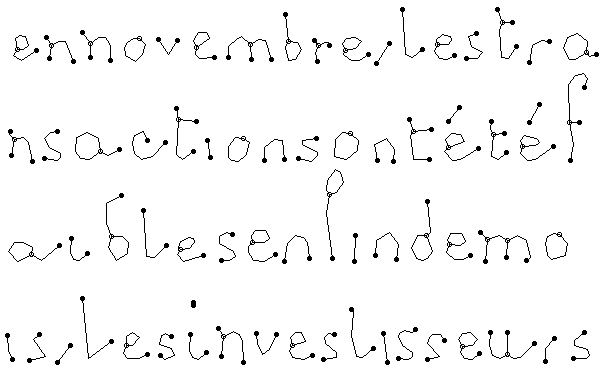 ennovembre,lestra
nsactionsontétéf
aiblesenfindemo
is,lesinvestisseurs